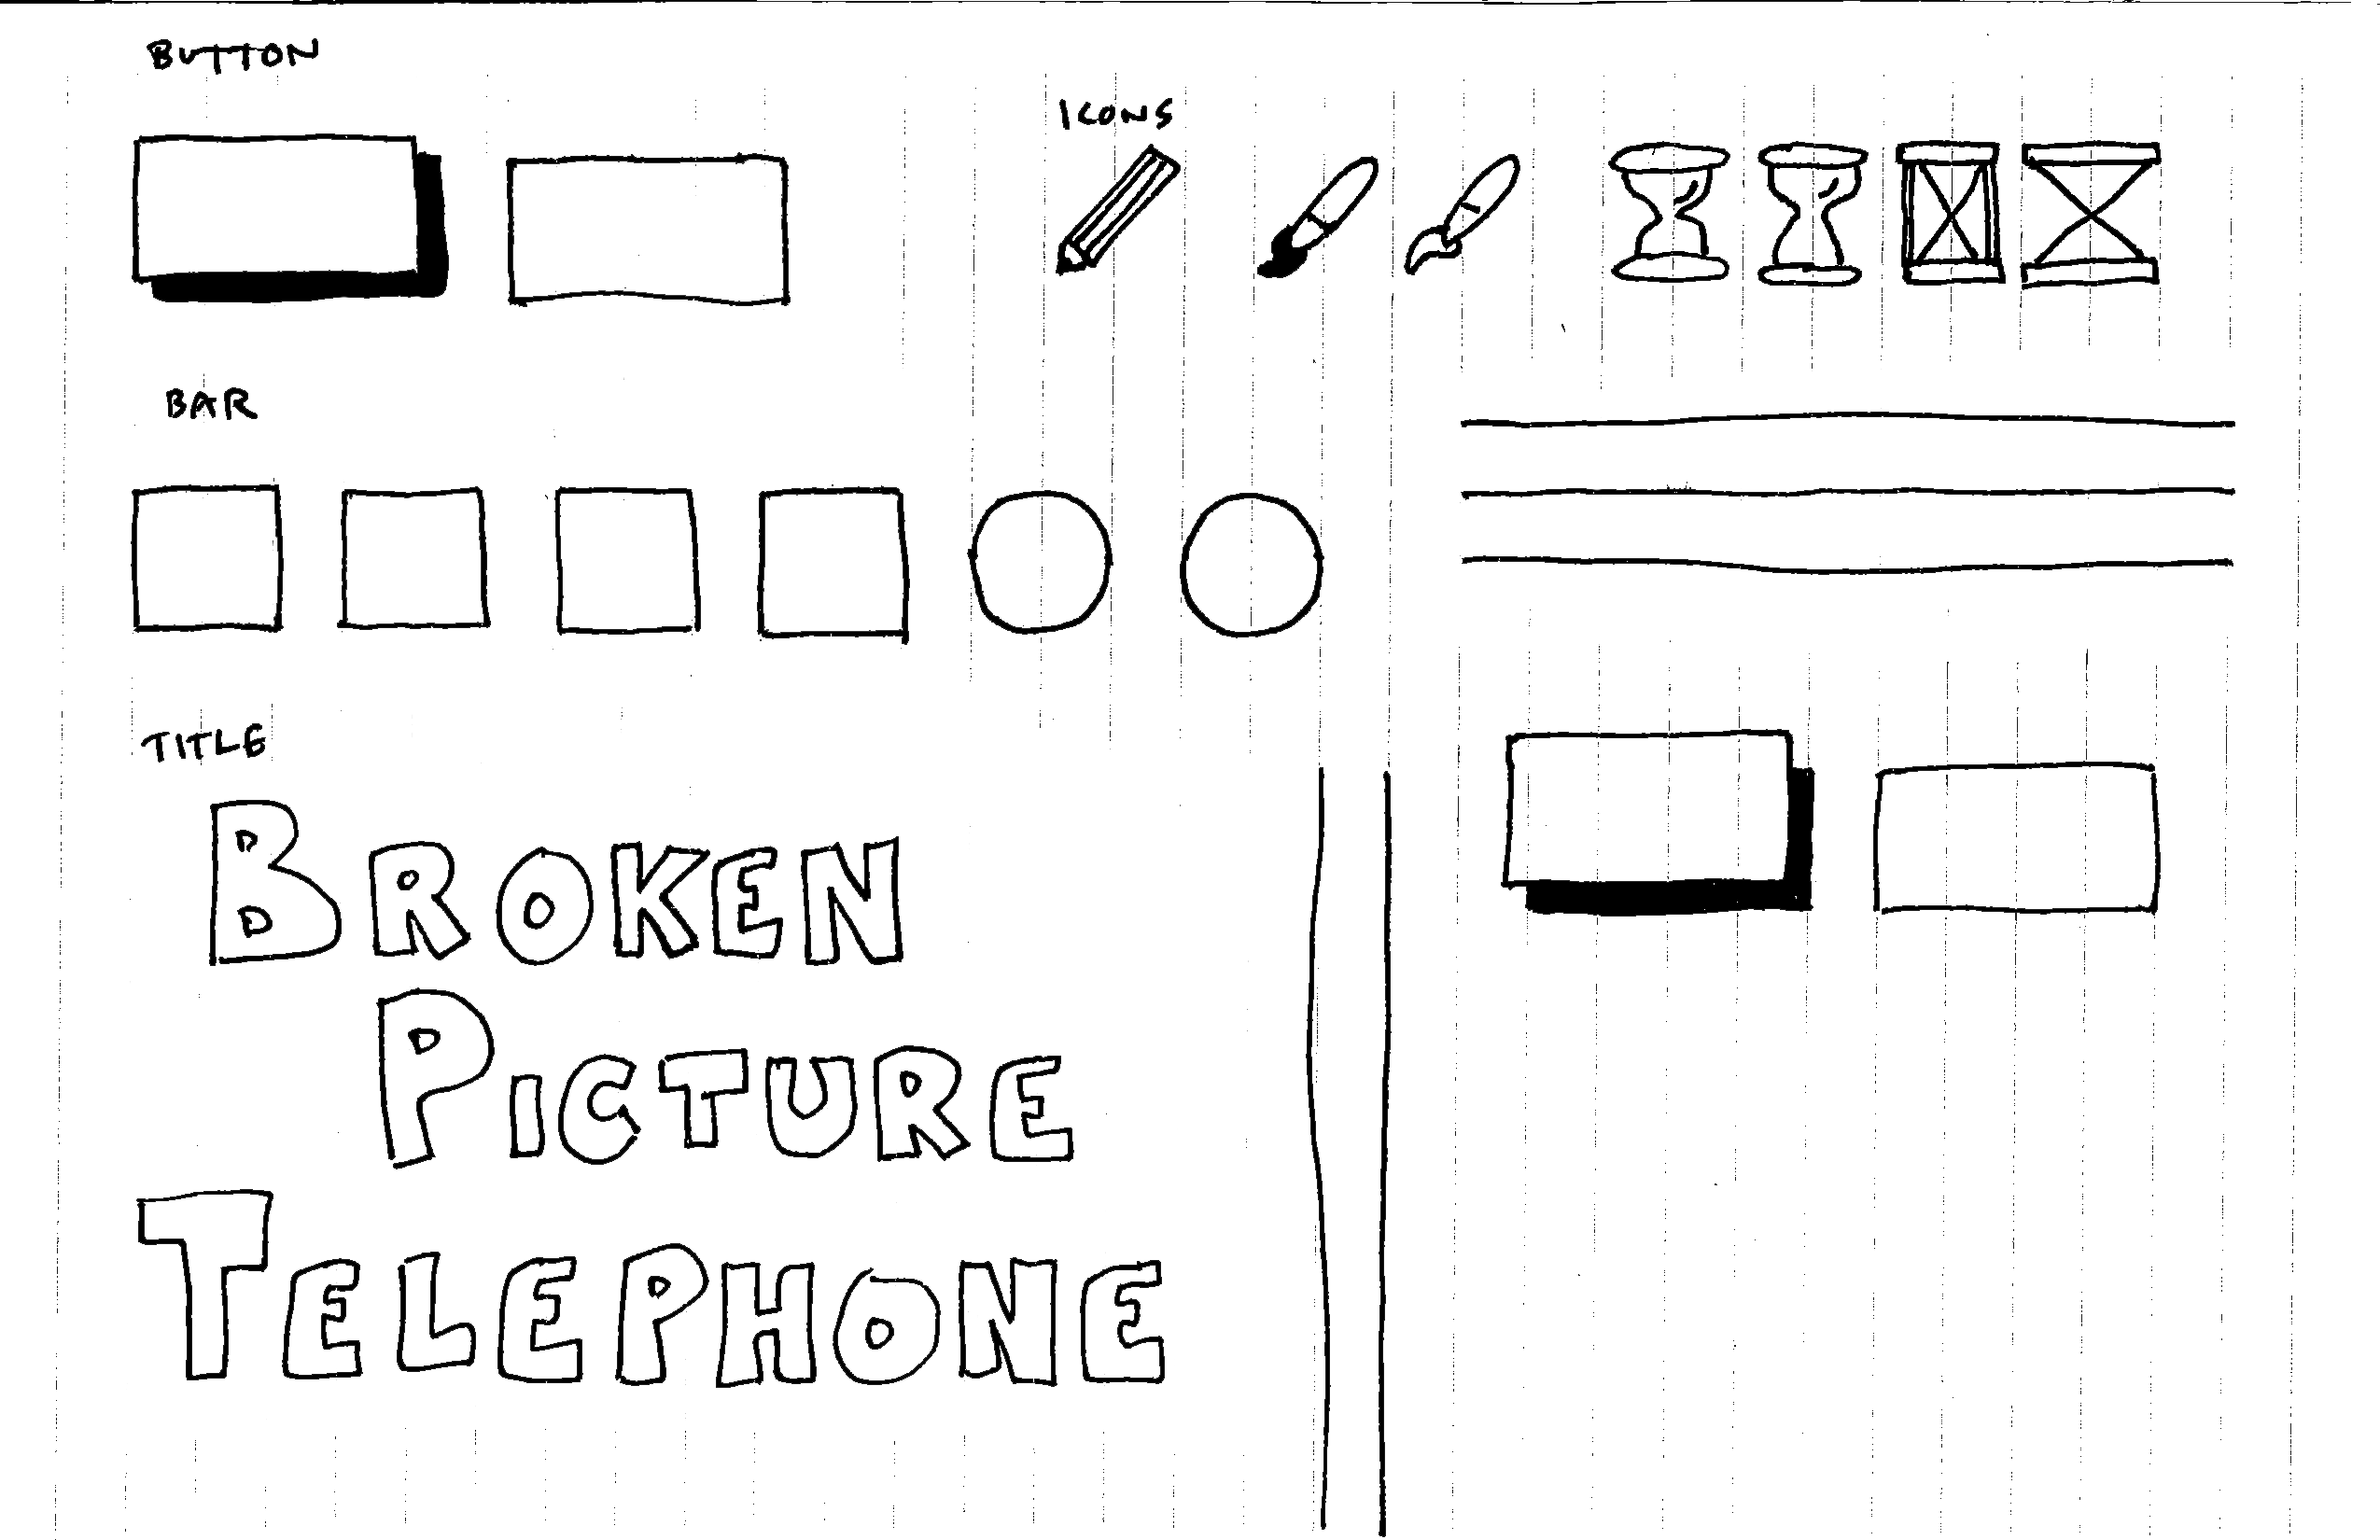 BUTTON
ICONS
BAR
TITLE
BROKEN
PICTURE
TELEPHONE